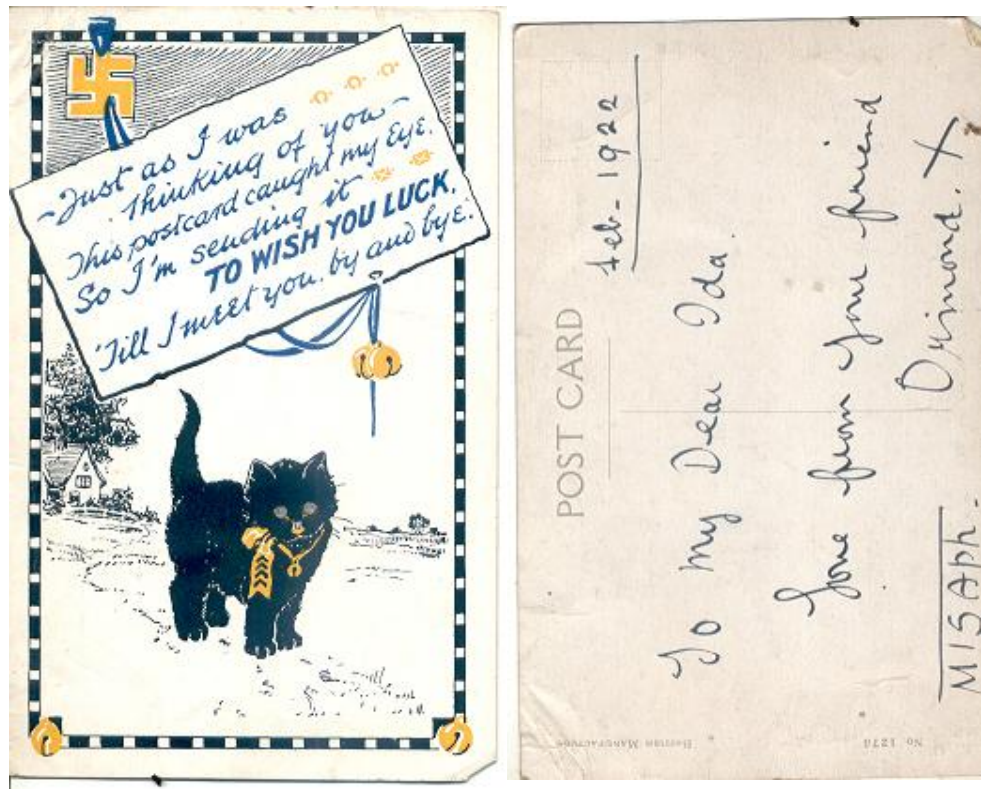 Just as I was
thinking of you
This postcard caught my Eye.
So I'm sending it
TO WISH YOU LUCK.
'Till I meet you. by and bye.
POST CARD
Feb - 1922
To My Dear Ida
from
friend
MISAph.
BRITISH MANUFACTURE
No 1278